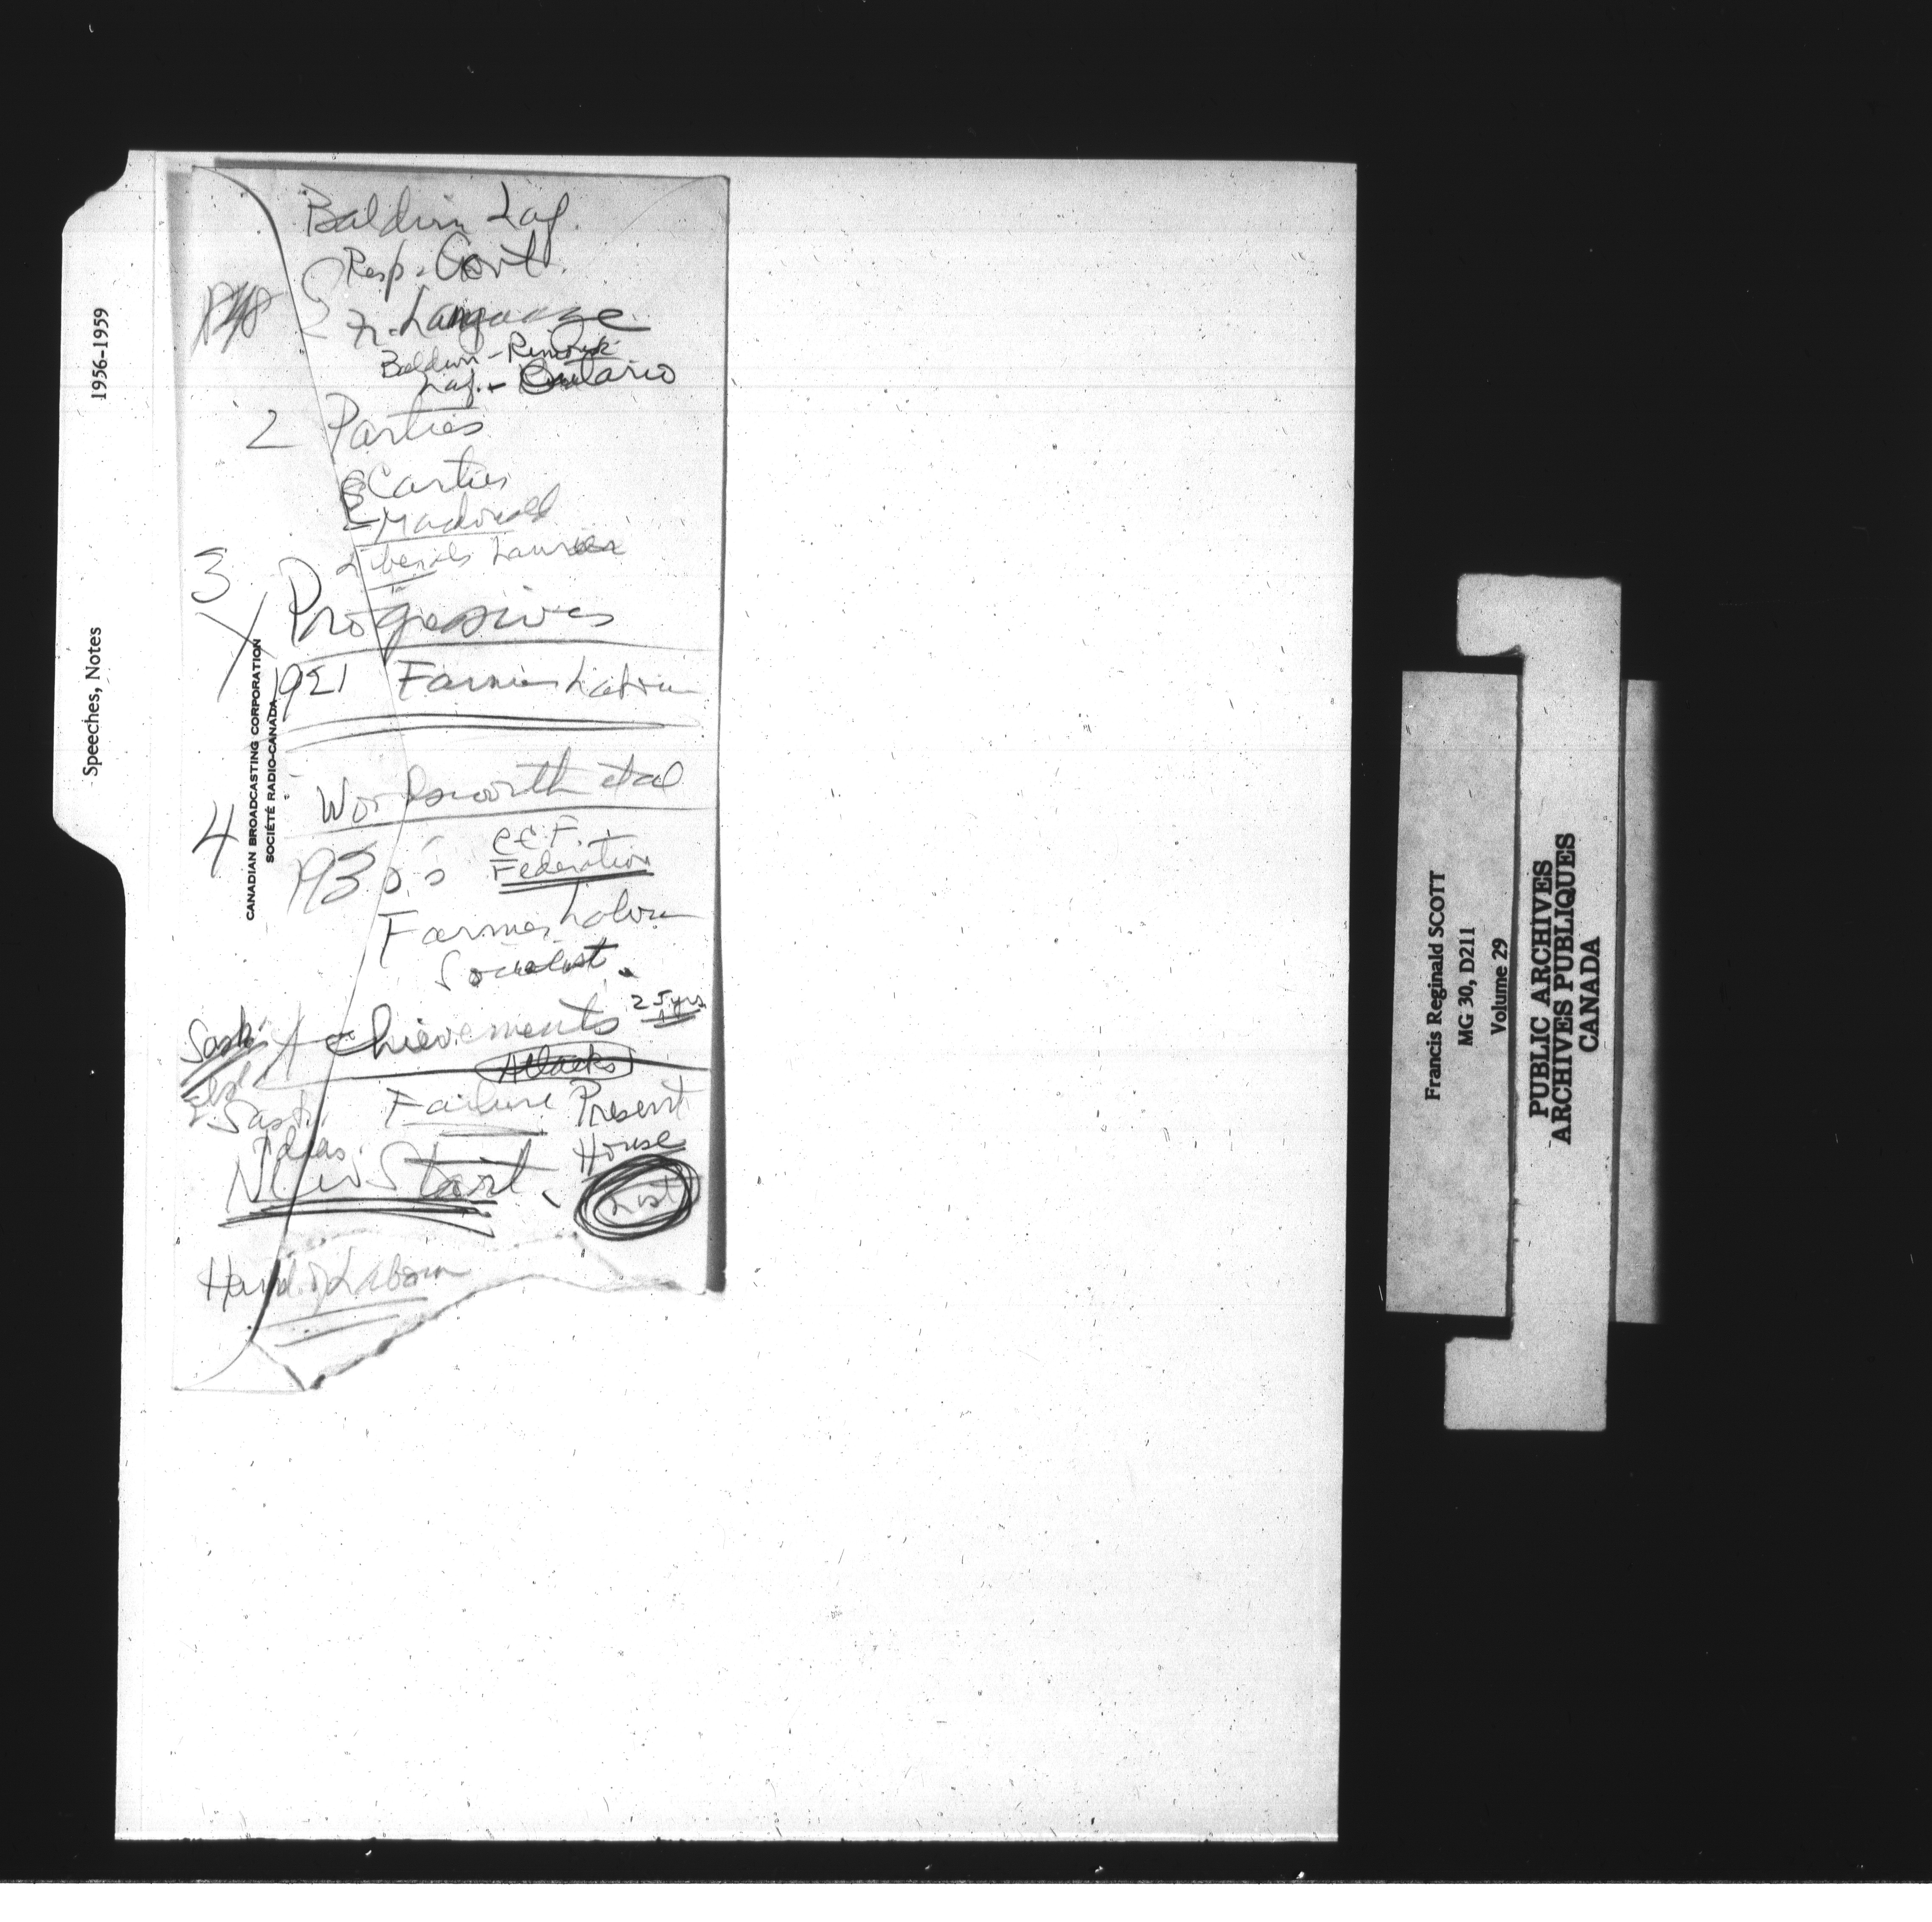 Speeches, Notes
1956-1959
Baldwin Laf.
Resp. Govt.
Fr. Language
Baldwin - Rimouski
Laf. - Ontario
2 Parties
Cartier
Macdonald
Liberals Laurier
3
Progessives
1921 Farmer Labour
CANADIAN BROADCASTING CORPORATION
SOCIÉTÉ RADIO-CANADA
Woodsworth et al
4
1930's C.C.F.
Federation
Farmer Labour
Socialist.
Sask. Achievements 25 yrs
Attacks
Sask. Failure Present
Ideas. House
New Start. List
Hand of Labour
Francis Reginald SCOTT
MG 30, D211
Volume 29
PUBLIC ARCHIVES
ARCHIVES PUBLIQUES
CANADA